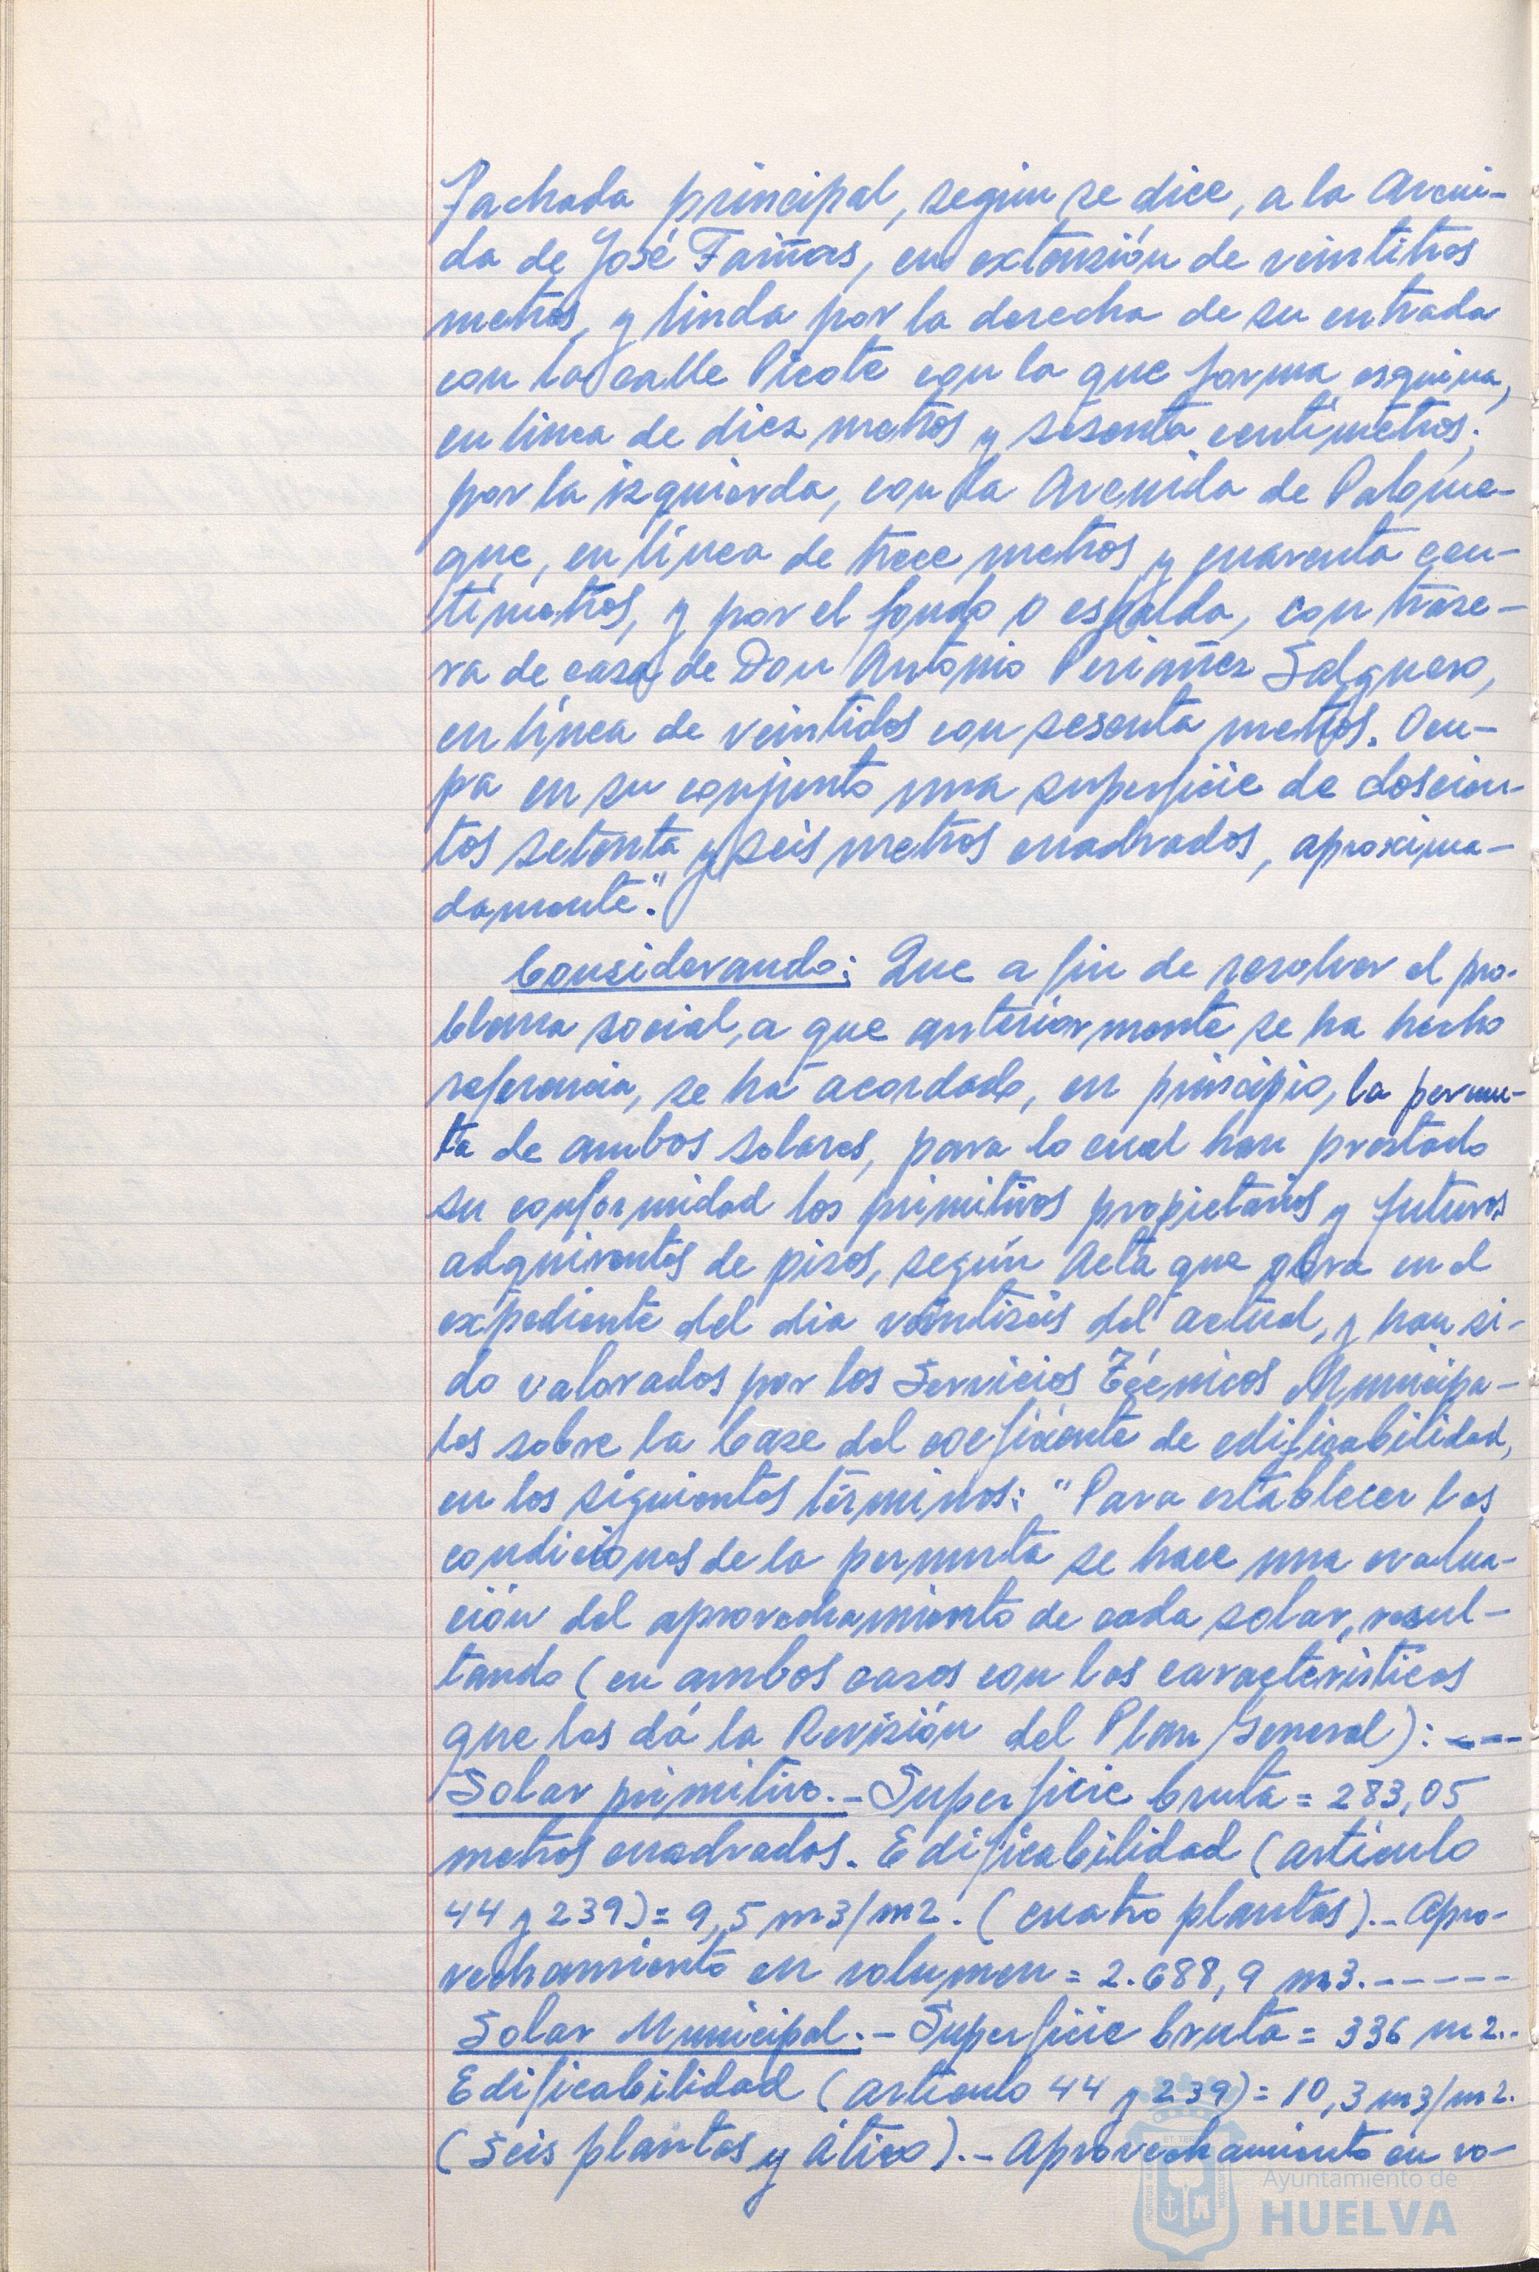 fachada principal, según se dice, a la Aveni-
da de José Fariñas, en extensión de veintitres
metros, y linda por la derecha de su entrada
con la calle Picote con la que forma esquina,
en línea de diez metros y sesenta centímetros;
por la izquierda, con la Avenida de Palome-
que, en línea de trece metros y cuarenta cen-
tímetros, y por el fondo o espalda, con trase-
ra de casa de Don Antonio Periañez Salguero,
en línea de veintidos con sesenta metros. Ocu-
pa en su conjunto una superficie de doscien-
tos setenta y seis metros cuadrados, aproxima-
damente".
Considerando: Que a fin de resolver el pro-
blema social, a que anteriormente se ha hecho
referencia, se ha acordado, en principio, la permu-
ta de ambos solares, para lo cual han prestado
su conformidad los primitivos propietarios y futuros
adquirentes de pisos, según Acta que obra en el
expediente del dia veintiseis del actual, y han si-
do valorados por los Servicios Técnicos Municipa-
les sobre la base del coeficiente de edificabilidad,
en los siguientes términos: "Para establecer las
condiciones de la permuta se hace una evalua-
ción del aprovechamiento de cada solar, resul-
tando (en ambos casos con las características
que las dá la Revisión del Plan General): ----
Solar primitivo.- Superficie bruta = 283,05
metros cuadrados. Edificabilidad (artículo
44 y 239) = 9,5 m3/m2. (cuatro plantas).- Apro-
vechamiento en volumen = 2.688,9 m3.-----
Solar Municipal.- Superficie bruta = 336 m2.-
Edificabilidad (artículo 44 y 239) = 10,3 m3/m2.
(Seis plantas y ático).- Aprovechamiento en vo-
Ayuntamiento de
HUELVA